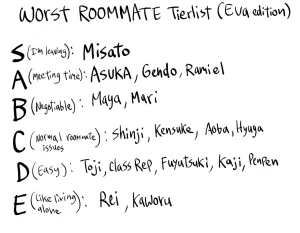 WORST ROOMMATE Tierlist (Eva edition)
S (I'm leaving): Misato
A (Meeting time): ASUKA, Gendo, Ramiel
B (Negotiable): Maya, Mari
C (Normal roommate issues): Shinji, Kensuke, Aoba, Hyuga
D (Easy): Toji, Class Rep, Fuyutsuki, Kaji, Penpen
E (Like living alone): Rei, Kaworu